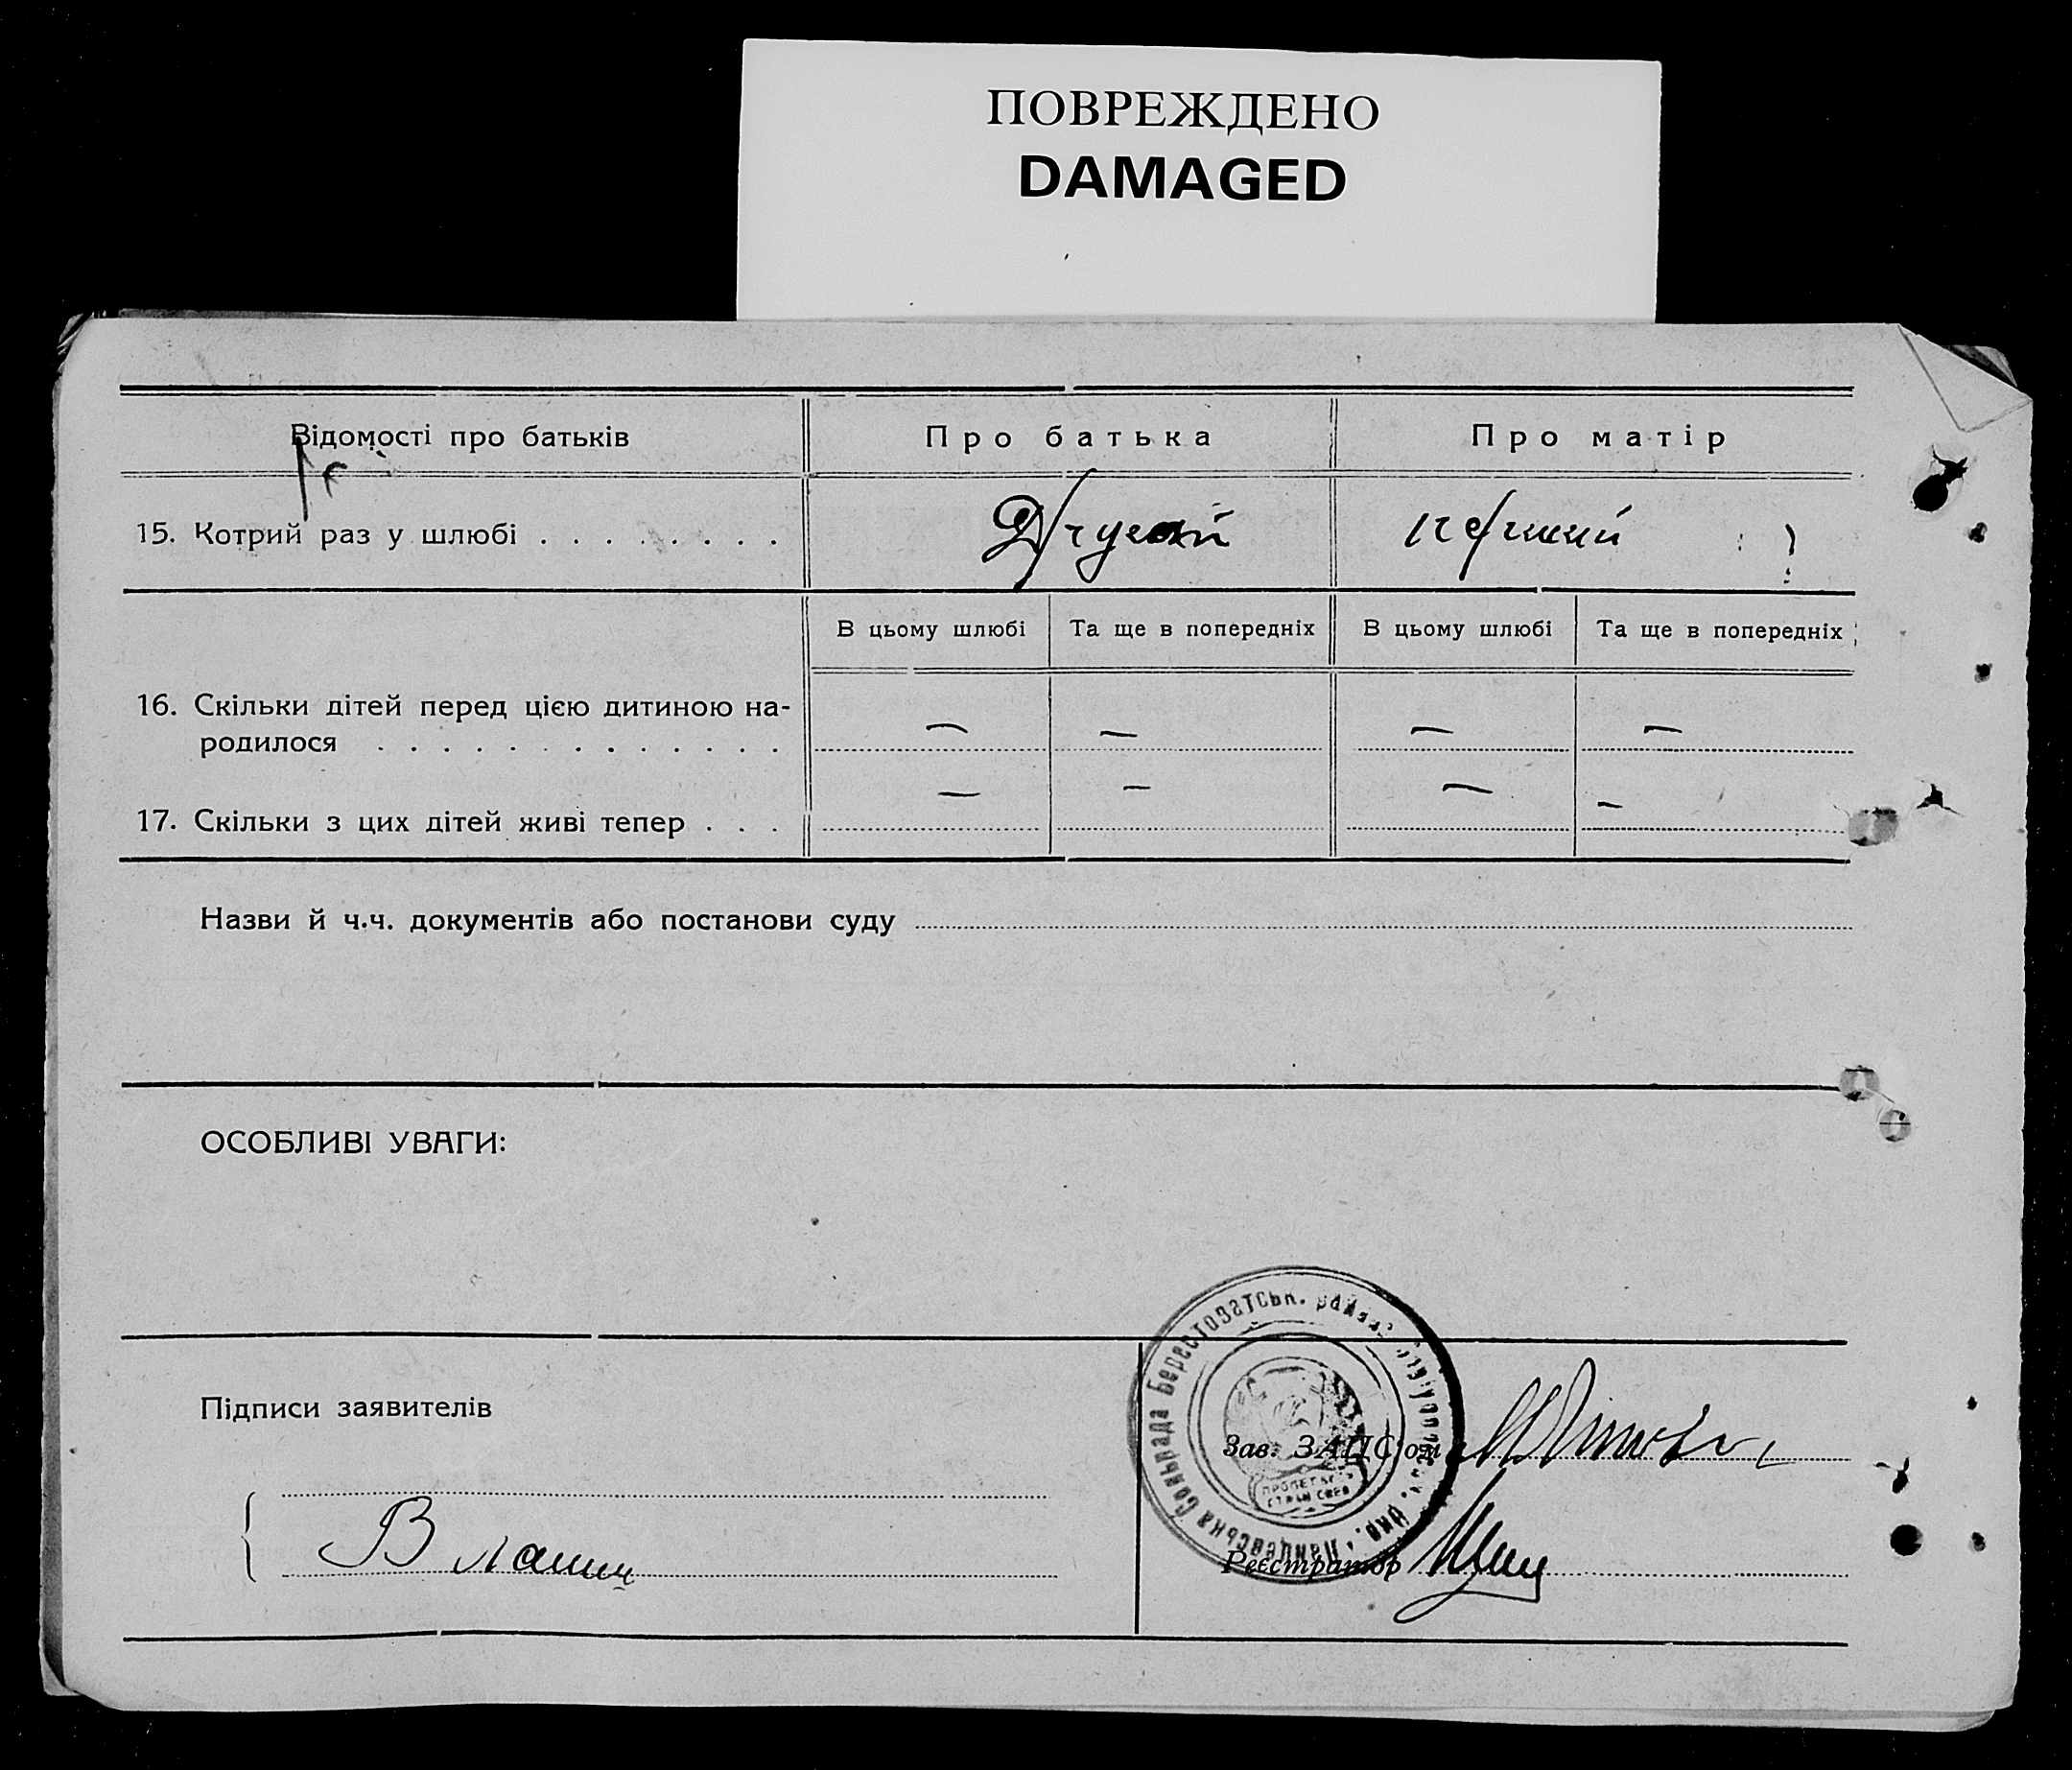 ПОВРЕЖДЕНО
DAMAGED
Відомості про батьків
Про батька
Про матір
15. Котрий раз у шлюбі
Другий
первий
В цьому шлюбі
Та ще в попередніх
В цьому шлюбі
Та ще в попередніх
16. Скільки дітей перед цією дитиною на-
родилося
— — — —
17. Скільки з цих дітей живі тепер
— — — —
Назви й ч.ч. документів або постанови суду
ОСОБЛИВІ УВАГИ:
Підписи заявителів
Зав. ЗАЦС'ом
Реєстратор
Сольрада Берестоватськ.
Окр.